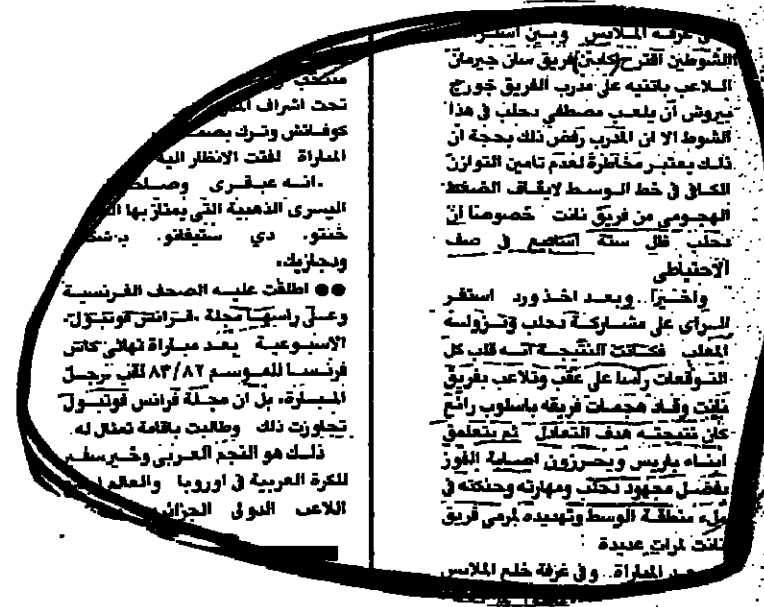 غرفة الملابس وبين
الشوطين اقترح كابتن فريق سان جيرمان
اللاعب باتنيه على مدرب الفريق جورج
بيروش أن يلعب مصطفى دحلب في هذا
الشوط الا ان المدرب رفض ذلك بحجة ان
ذلك يعتبر مخاطرة لعدم تامين التوازن
الكافي في خط الوسط لايقاف الضغط
الهجومي من فريق نانت خصوصا ان
دحلب ظل ستة اسابيع في صف
الاحتياطي
واخيرا وبعد اخذ ورد استقر
الراى على مشاركة دحلب ونزوله
الملعب فكانت النتيجة انه قلب كل
التوقعات راسا على عقب وتلاعب بفريق
نانت وقاد هجمات فريقه باسلوب رائع
كان نتيجته هدف التعادل ثم يتعلمق
ابناء باريس ويحرزون اصباية الفوز
بفضل مجهود دحلب ومهارته وحنكته في
ملء منطقة الوسط وتهديده لمرمى فريق
نانت لمرات عديدة
المباراة. وفي غرفة خلع الملابس
منتخب
تحت اشراف
كوفاتش وترك
المباراة لفتت الانظار اليه
.انه عبقرى
اليسرى الذهبية التي يمتاز بها
خنتو. دي ستيفانو.
●● اطلقت عليه الصحف الفرنسية
وعلى راسها مجلة .فرانس فوتبول.
الاسبوعية بعد مباراة نهائي كاس
فرنسا للموسم ٨٣/٨٢ لقب .رجل
المباراة. بل ان مجلة فرانس فوتبول
تجاوزت ذلك وطالبت باقامة تمثال له.
ذلك هو النجم العربى وخير سفير
للكرة العربية في اوروبا والعالم
اللاعب الدولى